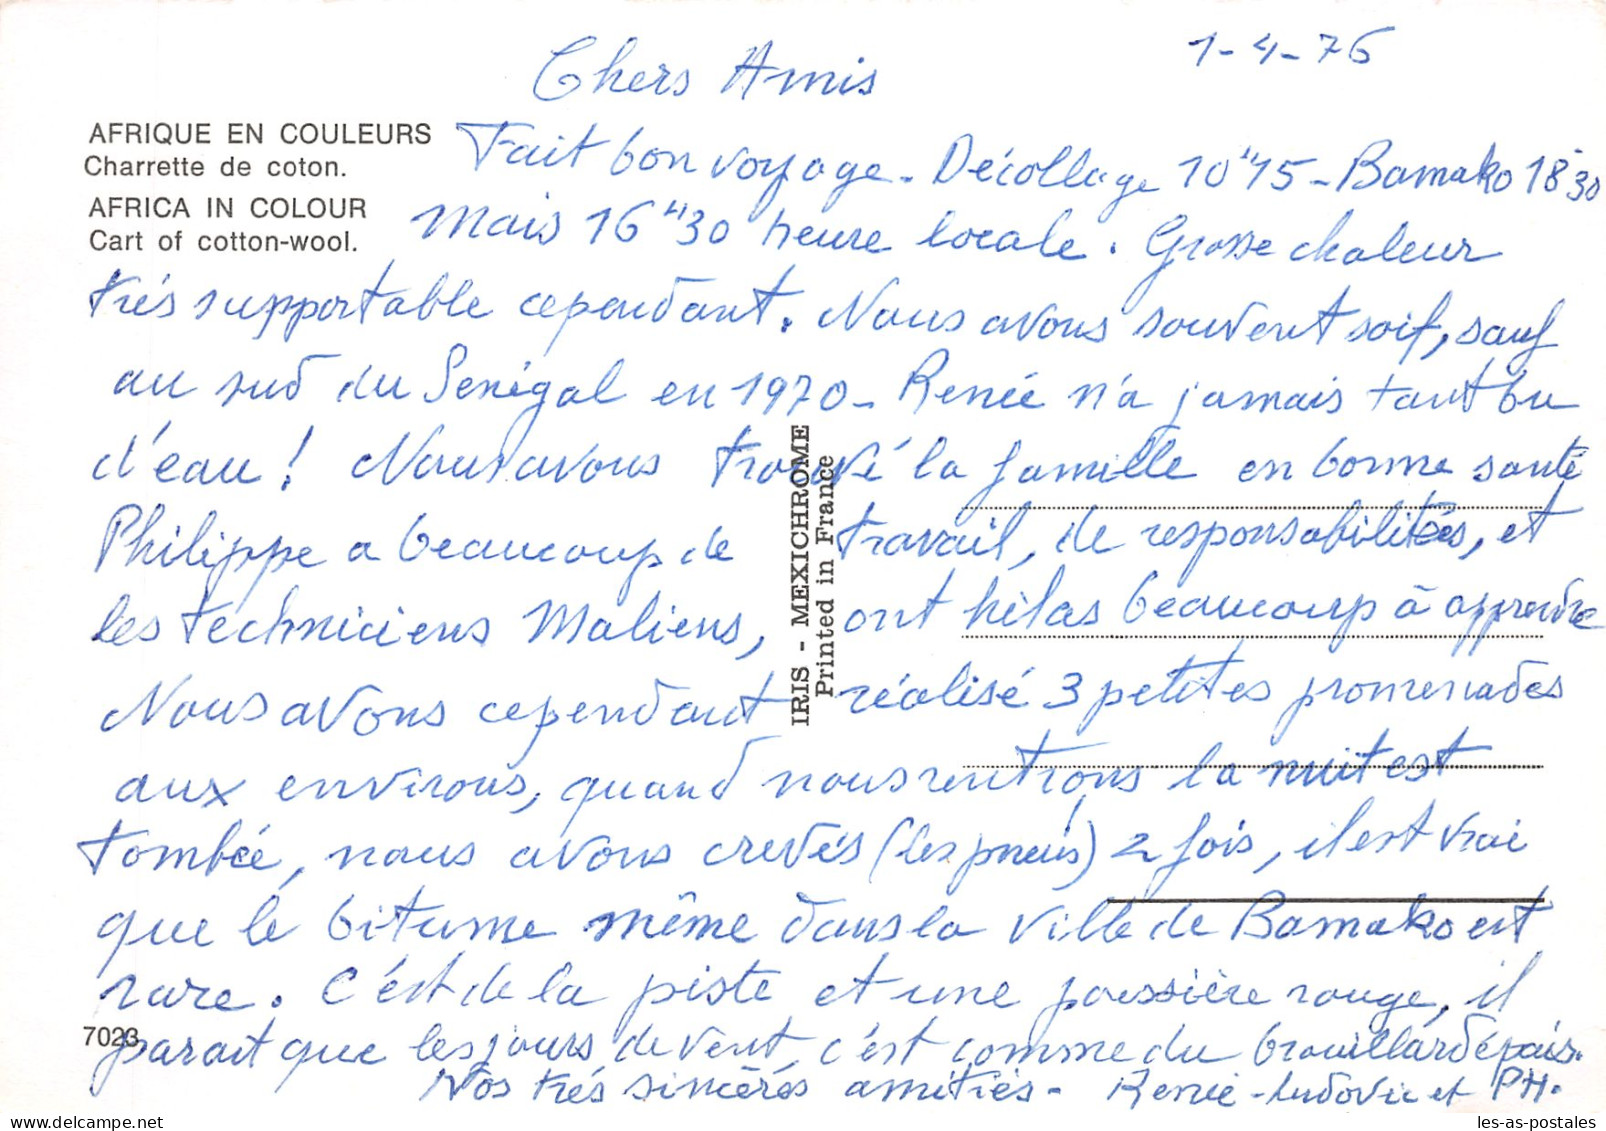 1-4-76
Chers Amis
AFRIQUE EN COULEURS
Charrette de coton.
AFRICA IN COLOUR
Cart of cotton-wool.
Fait bon voyage. Décollage 10"15 - Bamako 18"30
Mais 16"30 heure locale. Grosse chaleur
très supportable cependant. Nous avons souvent soif, sauf
au sud du Sénégal en 1970 - Renée n'a jamais tant bu
d'eau ! Nous avons trouvé la famille en bonne santé
Philippe a beaucoup de travail, de responsabilités, et
les techniciens Maliens, ont hélas beaucoup à apprendre
Nous avons cependant réalisé 3 petites promenades
aux environs, quand nous rentrons la nuit est
tombée, nous avons crevés (les pneus) 2 fois, il est vrai
que le bitume même dans la ville de Bamako est
rare. C'est de la piste et une poussière rouge, il
parait que les jours de vent, c'est comme du brouillard épais.
Nos très sincères amitiés - Renée - Ludovic et PH.
7023
IRIS - MEXICHROME
Printed in France
les-as-postales